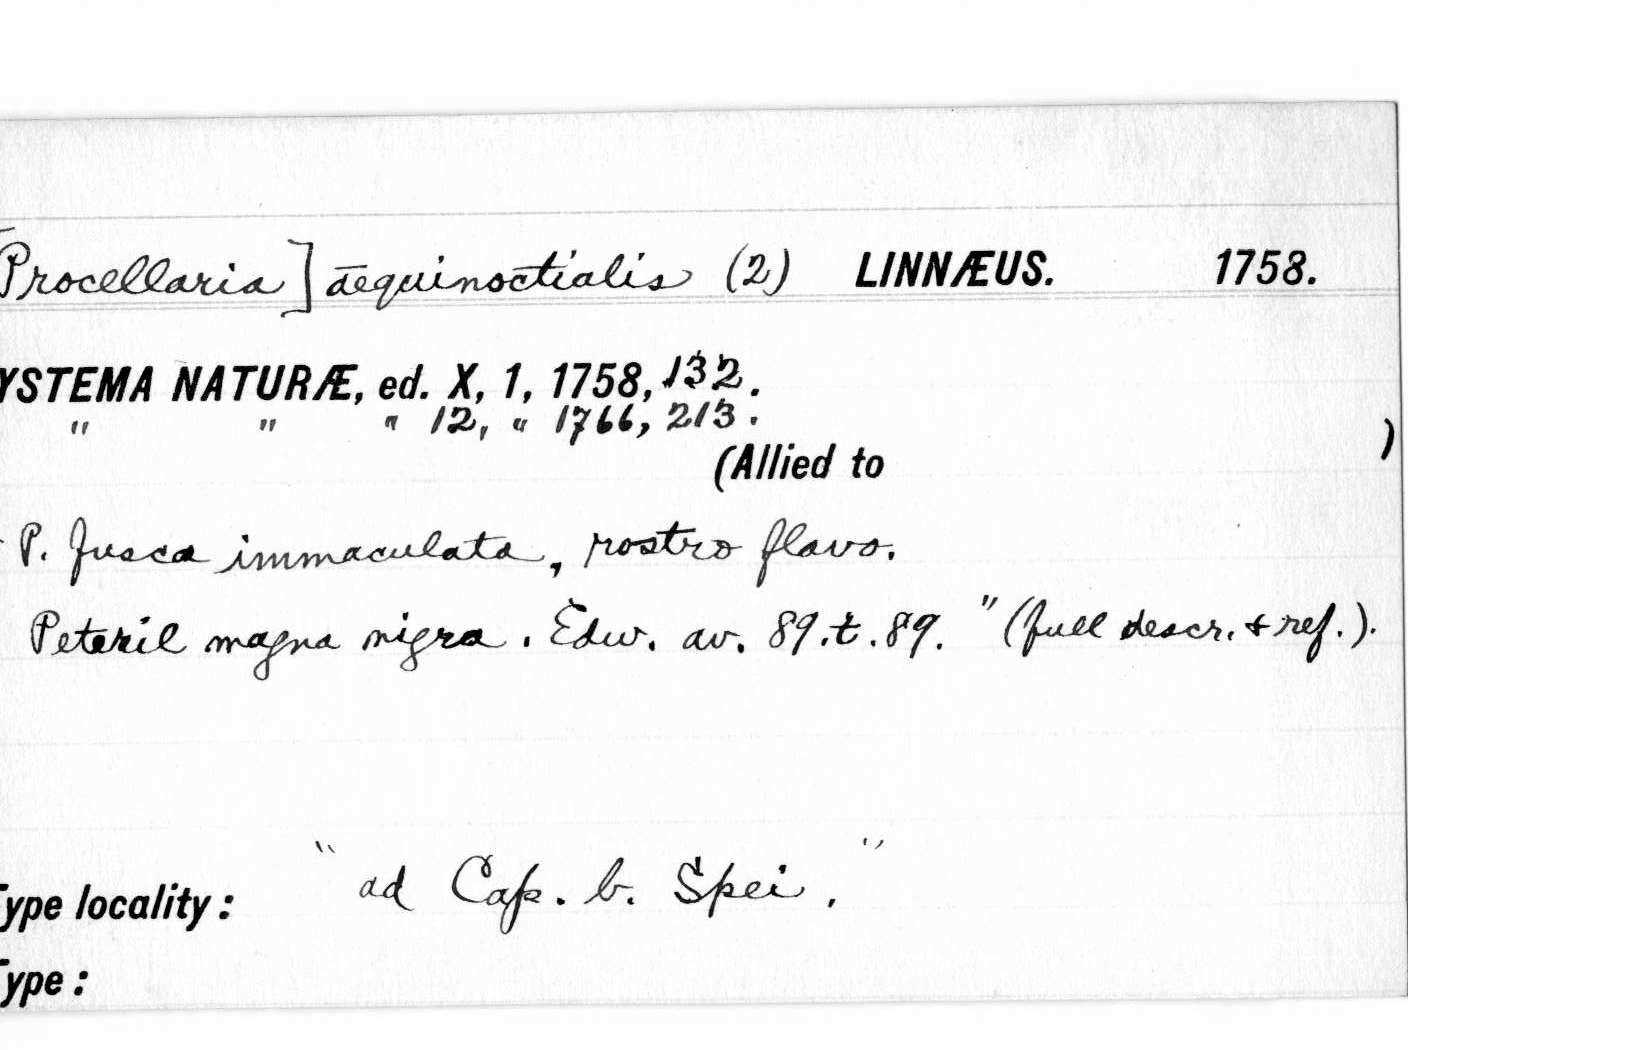 Procellaria] aequinoctialis (2) LINNÆUS. 1758.
YSTEMA NATURÆ, ed. X, 1, 1758, 132.
" " " 12, " 1766, 213.
(Allied to )
P. fusca immaculata, rostro flavo.
Peteril magna nigra. Edw. av. 89. t. 89. " (full descr. & ref.).
Type locality: " ad Cap. b. Spei. "
Type: